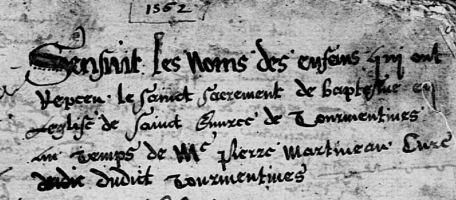 1562
Sensuit les noms des enfans qui ont
Repceu le sainct sacrement de baptesme en
Leglise de sainct de Tourmentines
au temps de Me pierre martineau Cure
dudit Tourmentines